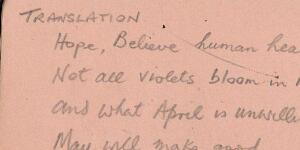 TRANSLATION
Hope, Believe human hea
Not all violets bloom in
and what April is unwilli
May will make good